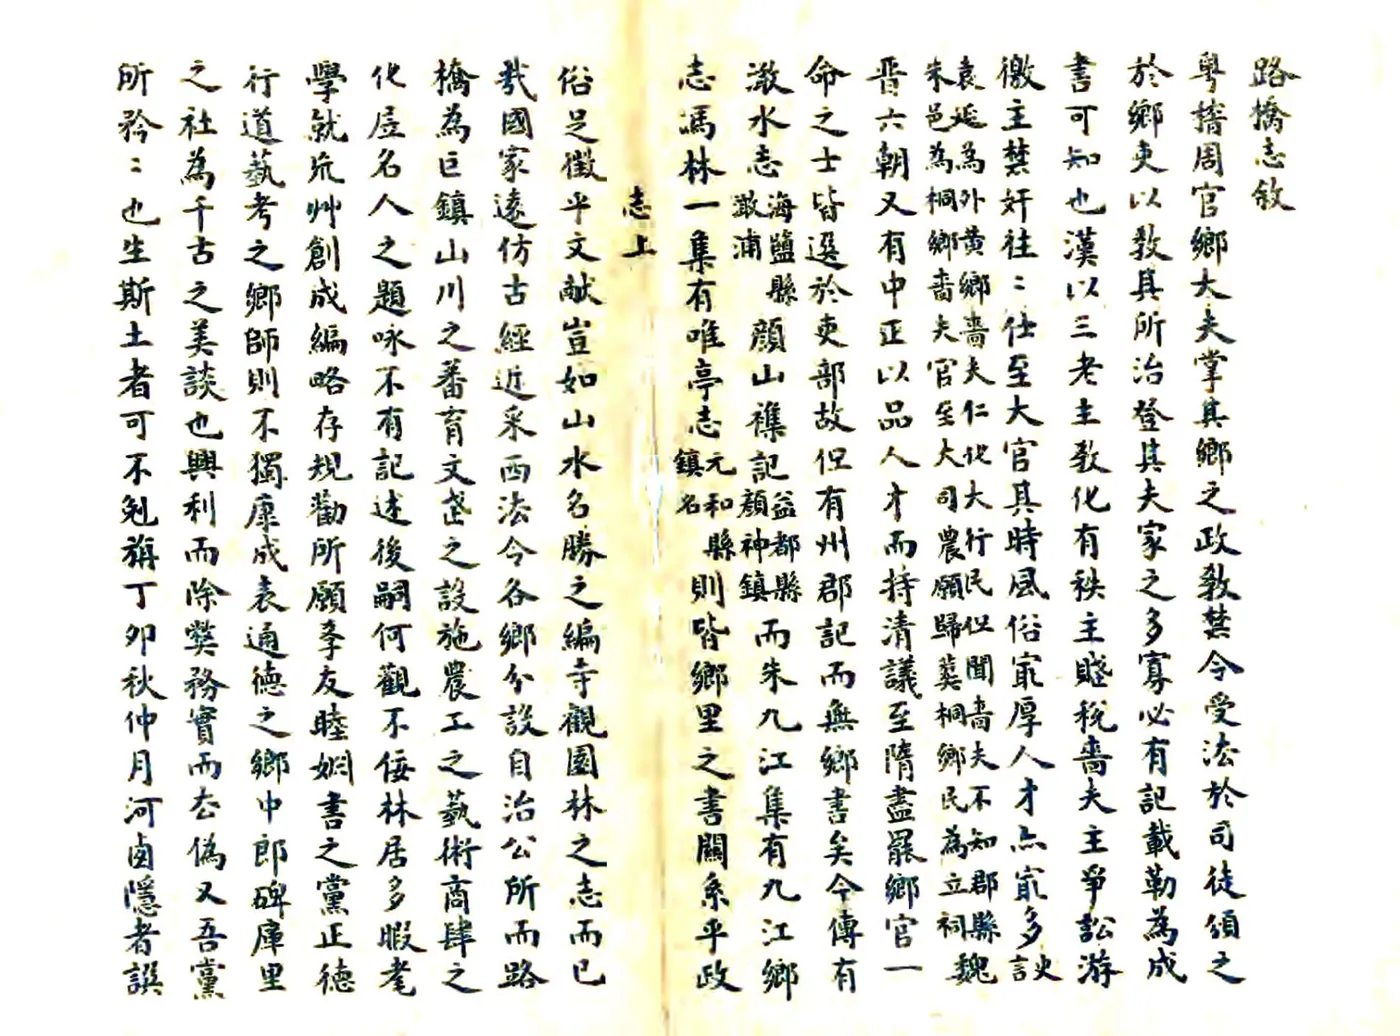 路橋志敘
粵稽周官鄉大夫掌其鄉之政敎禁令受法於司徒頒之
於鄉吏以敎其所治登其夫家之多寡必有記載勒為成
書可知也漢以三老主敎化有秩主賤稅嗇夫主爭訟游
徼主禁奸往〻仕至大官其時風俗冣厚人才亦冣多
袁延為外黄鄉嗇夫仁化大行民但聞嗇夫不知郡縣
朱邑為桐鄉嗇夫官至大司農願歸葬桐鄉民為立祠
魏
晋六朝又有中正以品人才而持清議至隋盡罷鄉官一
命之士皆選於吏部故但有州郡記而無鄉書矣今傳有
澉水志
海鹽縣
澉浦
顔山襍記
益都縣
顔神鎮
而朱九江集有九江鄉
志馮林一集有唯亭志
元和縣
鎮名
則皆鄉里之書關系乎政
志上
俗足徵乎文献豈如山水名勝之編寺觀園林之志而已
㦲國家遠仿古經近采西法令各鄉分設自治公所而路
橋為巨鎮山川之蕃育文𫝊之設施農工之藝術商肆之
化居名人之題咏不有記述後嗣何觀不佞林居多暇耄
學就荒艸創成編略存規勸所願孝友睦婣書之黨正德
行道藝考之鄉師則不獨康成表通德之鄉中郎碑庫里
之社為千古之美談也興利而除獘務實而去偽又吾黨
所矜〻也生斯土者可不勉旃丁卯秋仲月河鹵隱者譔